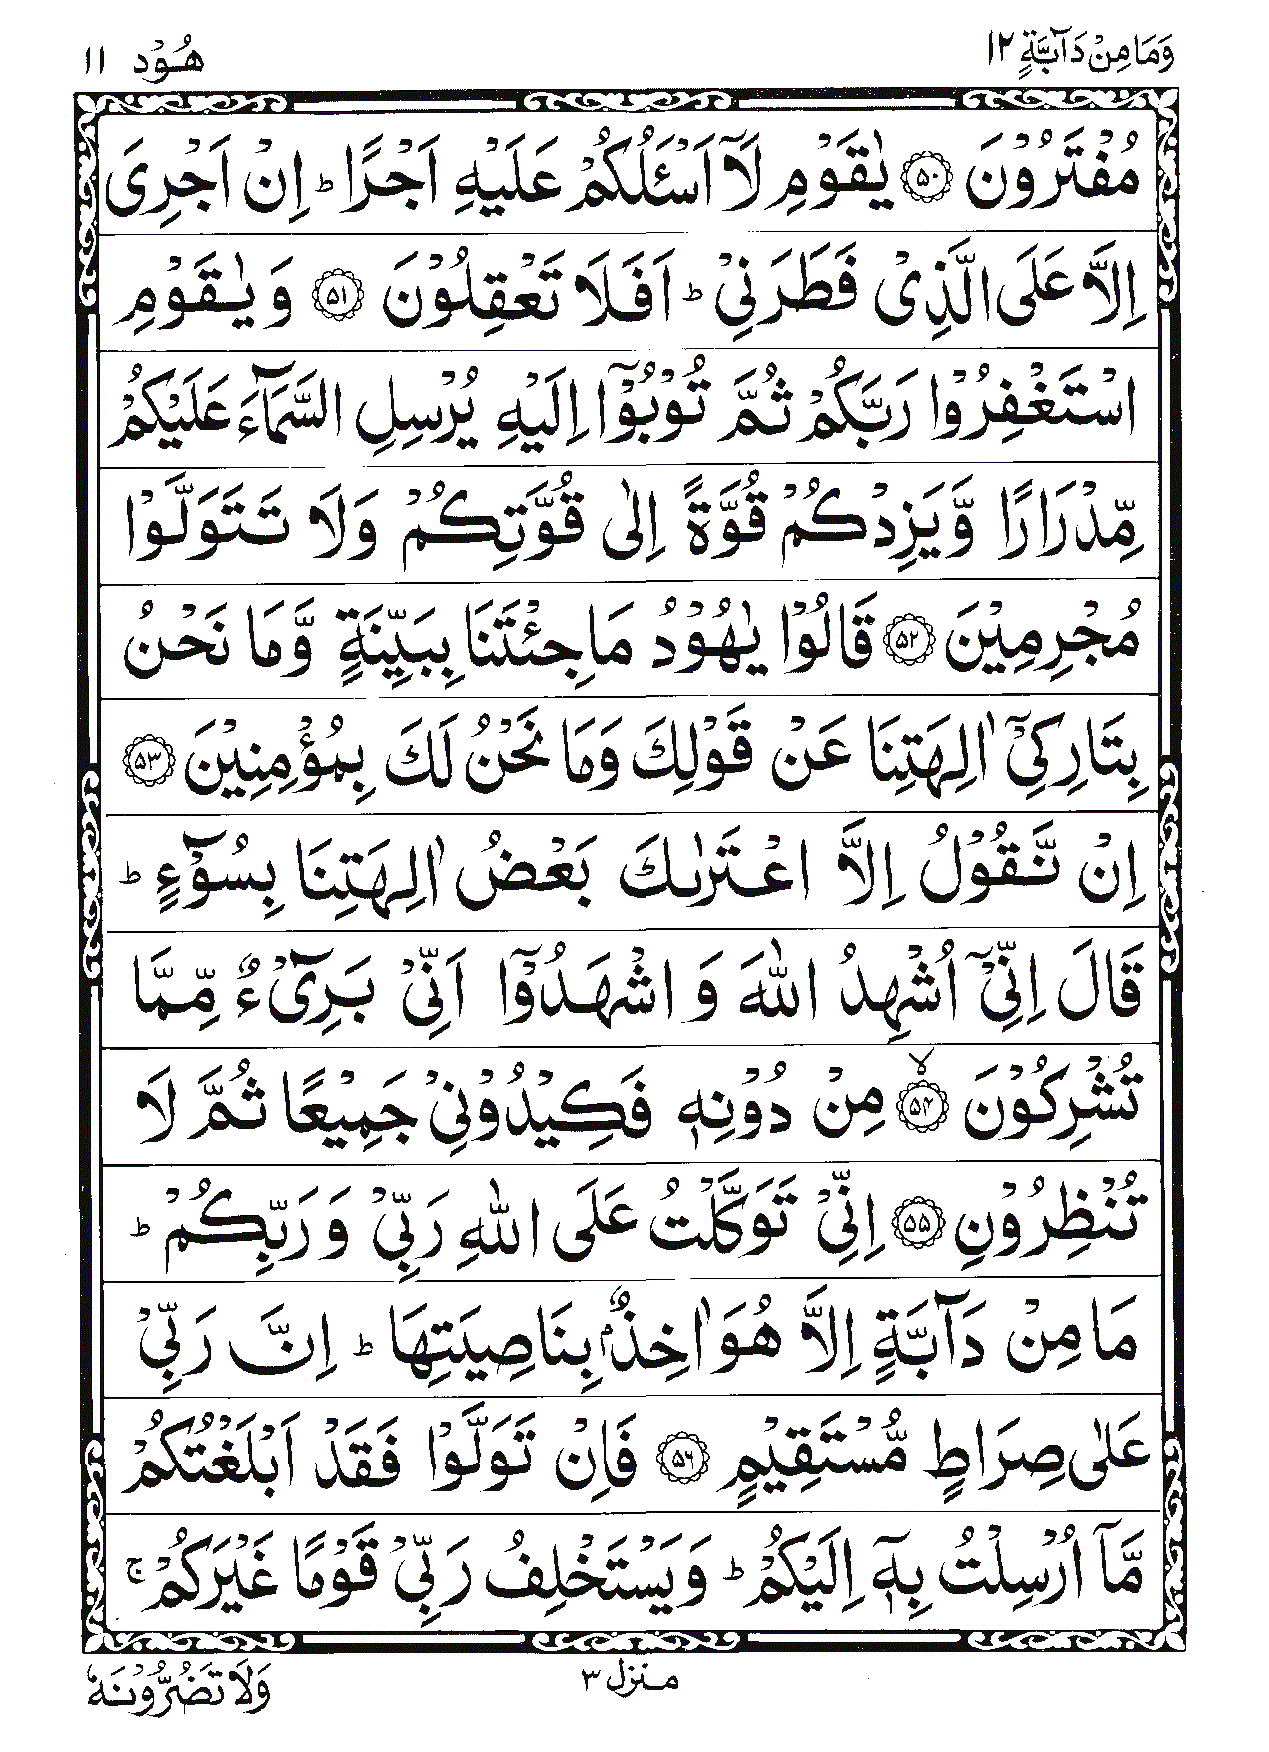 وَمَا مِنْ دَآبَّةٍ ١٢
هُوْد ١١
مُفْتَرُوْنَ ﴿۵۰﴾ يٰقَوْمِ لَآ اَسْـَٔلُكُمْ عَلَيْهِ اَجْرًا ؕ اِنْ اَجْرِىَ
اِلَّا عَلَى الَّذِىْ فَطَرَنِىْ ؕ اَفَلَا تَعْقِلُوْنَ ﴿۵۱﴾ وَ يٰقَوْمِ
اسْتَغْفِرُوْا رَبَّكُمْ ثُمَّ تُوْبُوْۤا اِلَيْهِ يُرْسِلِ السَّمَآءَ عَلَيْكُمْ
مِّدْرَارًا وَّيَزِدْكُمْ قُوَّةً اِلٰى قُوَّتِكُمْ وَلَا تَتَوَلَّوْا
مُجْرِمِيْنَ ﴿۵۲﴾ قَالُوْا يٰهُوْدُ مَا جِئْتَنَا بِبَيِّنَةٍ وَّمَا نَحْنُ
بِتَارِكِىْۤ اٰلِهَتِنَا عَنْ قَوْلِكَ وَمَا نَحْنُ لَكَ بِمُؤْمِنِيْنَ ﴿۵۳﴾
اِنْ نَّقُوْلُ اِلَّا اعْتَرٰىكَ بَعْضُ اٰلِهَتِنَا بِسُوْٓءٍ ؕ
قَالَ اِنِّىْۤ اُشْهِدُ اللّٰهَ وَ اشْهَدُوْۤا اَنِّىْ بَرِىْٓءٌ مِّمَّا
تُشْرِكُوْنَ ﴿۵۴﴾ۙ مِنْ دُوْنِهٖ فَكِيْدُوْنِىْ جَمِيْعًا ثُمَّ لَا
تُنْظِرُوْنِ ﴿۵۵﴾ اِنِّىْ تَوَكَّلْتُ عَلَى اللّٰهِ رَبِّىْ وَ رَبِّكُمْ ؕ
مَا مِنْ دَآبَّةٍ اِلَّا هُوَ اٰخِذٌۢ بِنَاصِيَتِهَا ؕ اِنَّ رَبِّىْ
عَلٰى صِرَاطٍ مُّسْتَقِيْمٍ ﴿۵۶﴾ فَاِنْ تَوَلَّوْا فَقَدْ اَبْلَغْتُكُمْ
مَّاۤ اُرْسِلْتُ بِهٖۤ اِلَيْكُمْ ؕ وَيَسْتَخْلِفُ رَبِّىْ قَوْمًا غَيْرَكُمْ ۚ
منزل ٣
وَلَا تَضُرُّوْنَهٗ